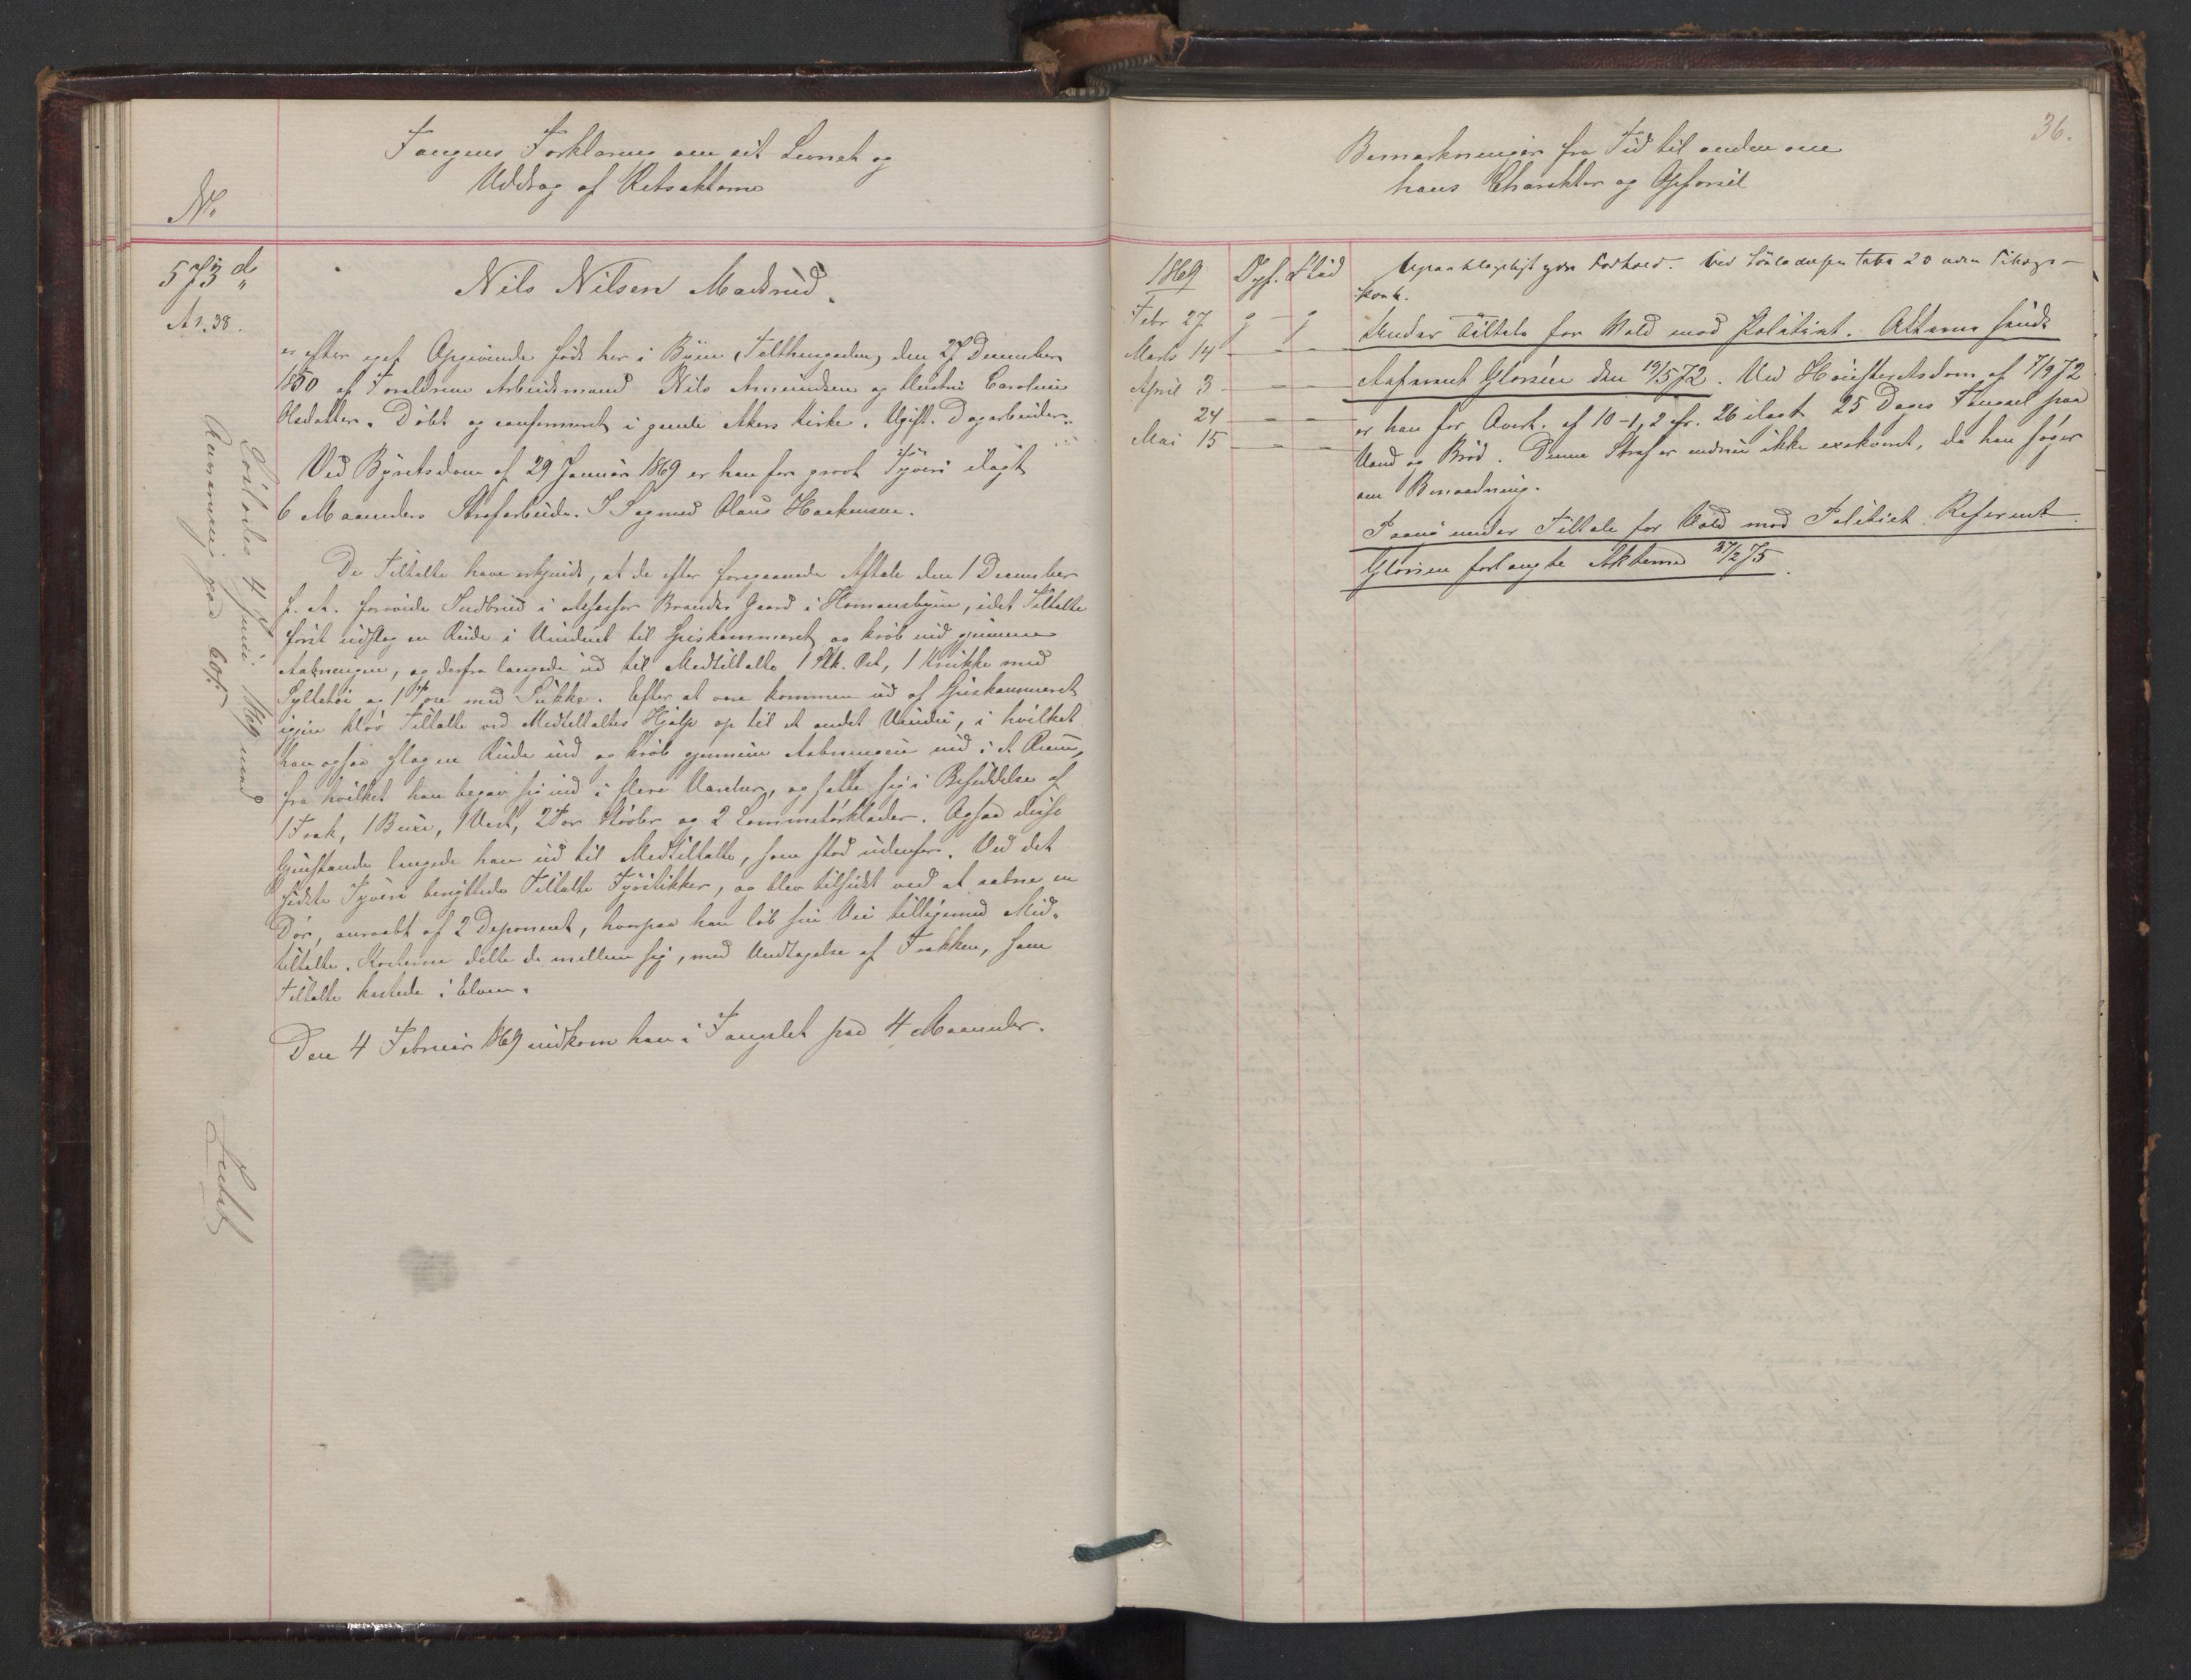 Fangens Forklaring om sit Levnet og
Uddrag af Retsakterne
No
573 d.
At. 38.
Nils Nilsen Madsrud.
er efter eget Opgivende født her i Byen (Telthusgaden) den 27 December
1850 af Forældrene Arbeidsmand Nils Amundsen og Hustru Caroline
Olsdatter. Døbt og confirmeret i gamle Akers Kirke. Ugift. Dagarbeider.
Ved Byretsdom af 29 Januar 1869 er han for grovt Tyveri ilagt
6 Maaneders Strafarbeide. I Sag med Olaus Haakensen.
De Tiltalte have erkjendt, at de efter foregaaende Aftale den 1 December
f. A. forøvede Indbrud i Assessor Brandts Gaard i Homansbyen, idet Tiltalte
først udslog en Rude i Vinduet til Spiskammeret og krøb ind gjennem
Aabningen, og derfra langede ud til Medtiltalte 1 Stk. Ost, 1 Krukke med
Syltetøi og 1 Pose med Sukker. Efter at være kommen ud af Spiskammeret
igjen klov Tiltalte ved Medtiltaltes Hjælp op til et andet Vindu, i hvilket
han ogsaa slog en Rude ind og krøb gjennem Aabningen ind i et Rum,
fra hvilket han begav sig ind i flere Værelser, og satte sig i Besiddelse af
1 Frak, 1 Buxe, 1 Vest, 2 Par Støvler og 2 Lommetørklæder. Ogsaa disse
Gjenstande langede han ud til Medtiltalte, som stod udenfor. Ved det
sidste Tyveri benyttede Tiltalte Fyrstikker, og blev tilsidst ved at aabne en
Dør, anraabt af 2 Deponent, hvorpaa han løb sin Vei tilligemed Med-
tiltalte. Kosterne delte de mellem sig, med Undtagelse af Frakken, som
Tiltalte kastede i Elven.
Den 4 Februar 1869 indkom han i Fængslet paa 4 Maaneder.
Løslodes 4 Juni 1869 med
paa 60
36.
Bemærkninger fra Tid til anden om
hans Charakter og Opførsel
1869 Opf. Flid
Febr 27 g g
Marts 14 — —
April 3 — —
24 — —
Mai 15 — —
Upaaklageligt ydre Forhold. Ved
Under Tiltale for Vold mod Politiet. Akterne sendt
Referent Glørsen den 19/5 72. Ved Høiesteretsdom af 7/9 72
er han for Overt. af 10-1, 2 cfr. 26 ilagt 25 Dages Fængsel paa
Vand og Brød. Denne Straf er endnu ikke exekveret, da han søger
om Benaadning.
Paany under Tiltale for Vold mod Politiet. Referent
Glørsen forlangte Akterne 27/2 75.